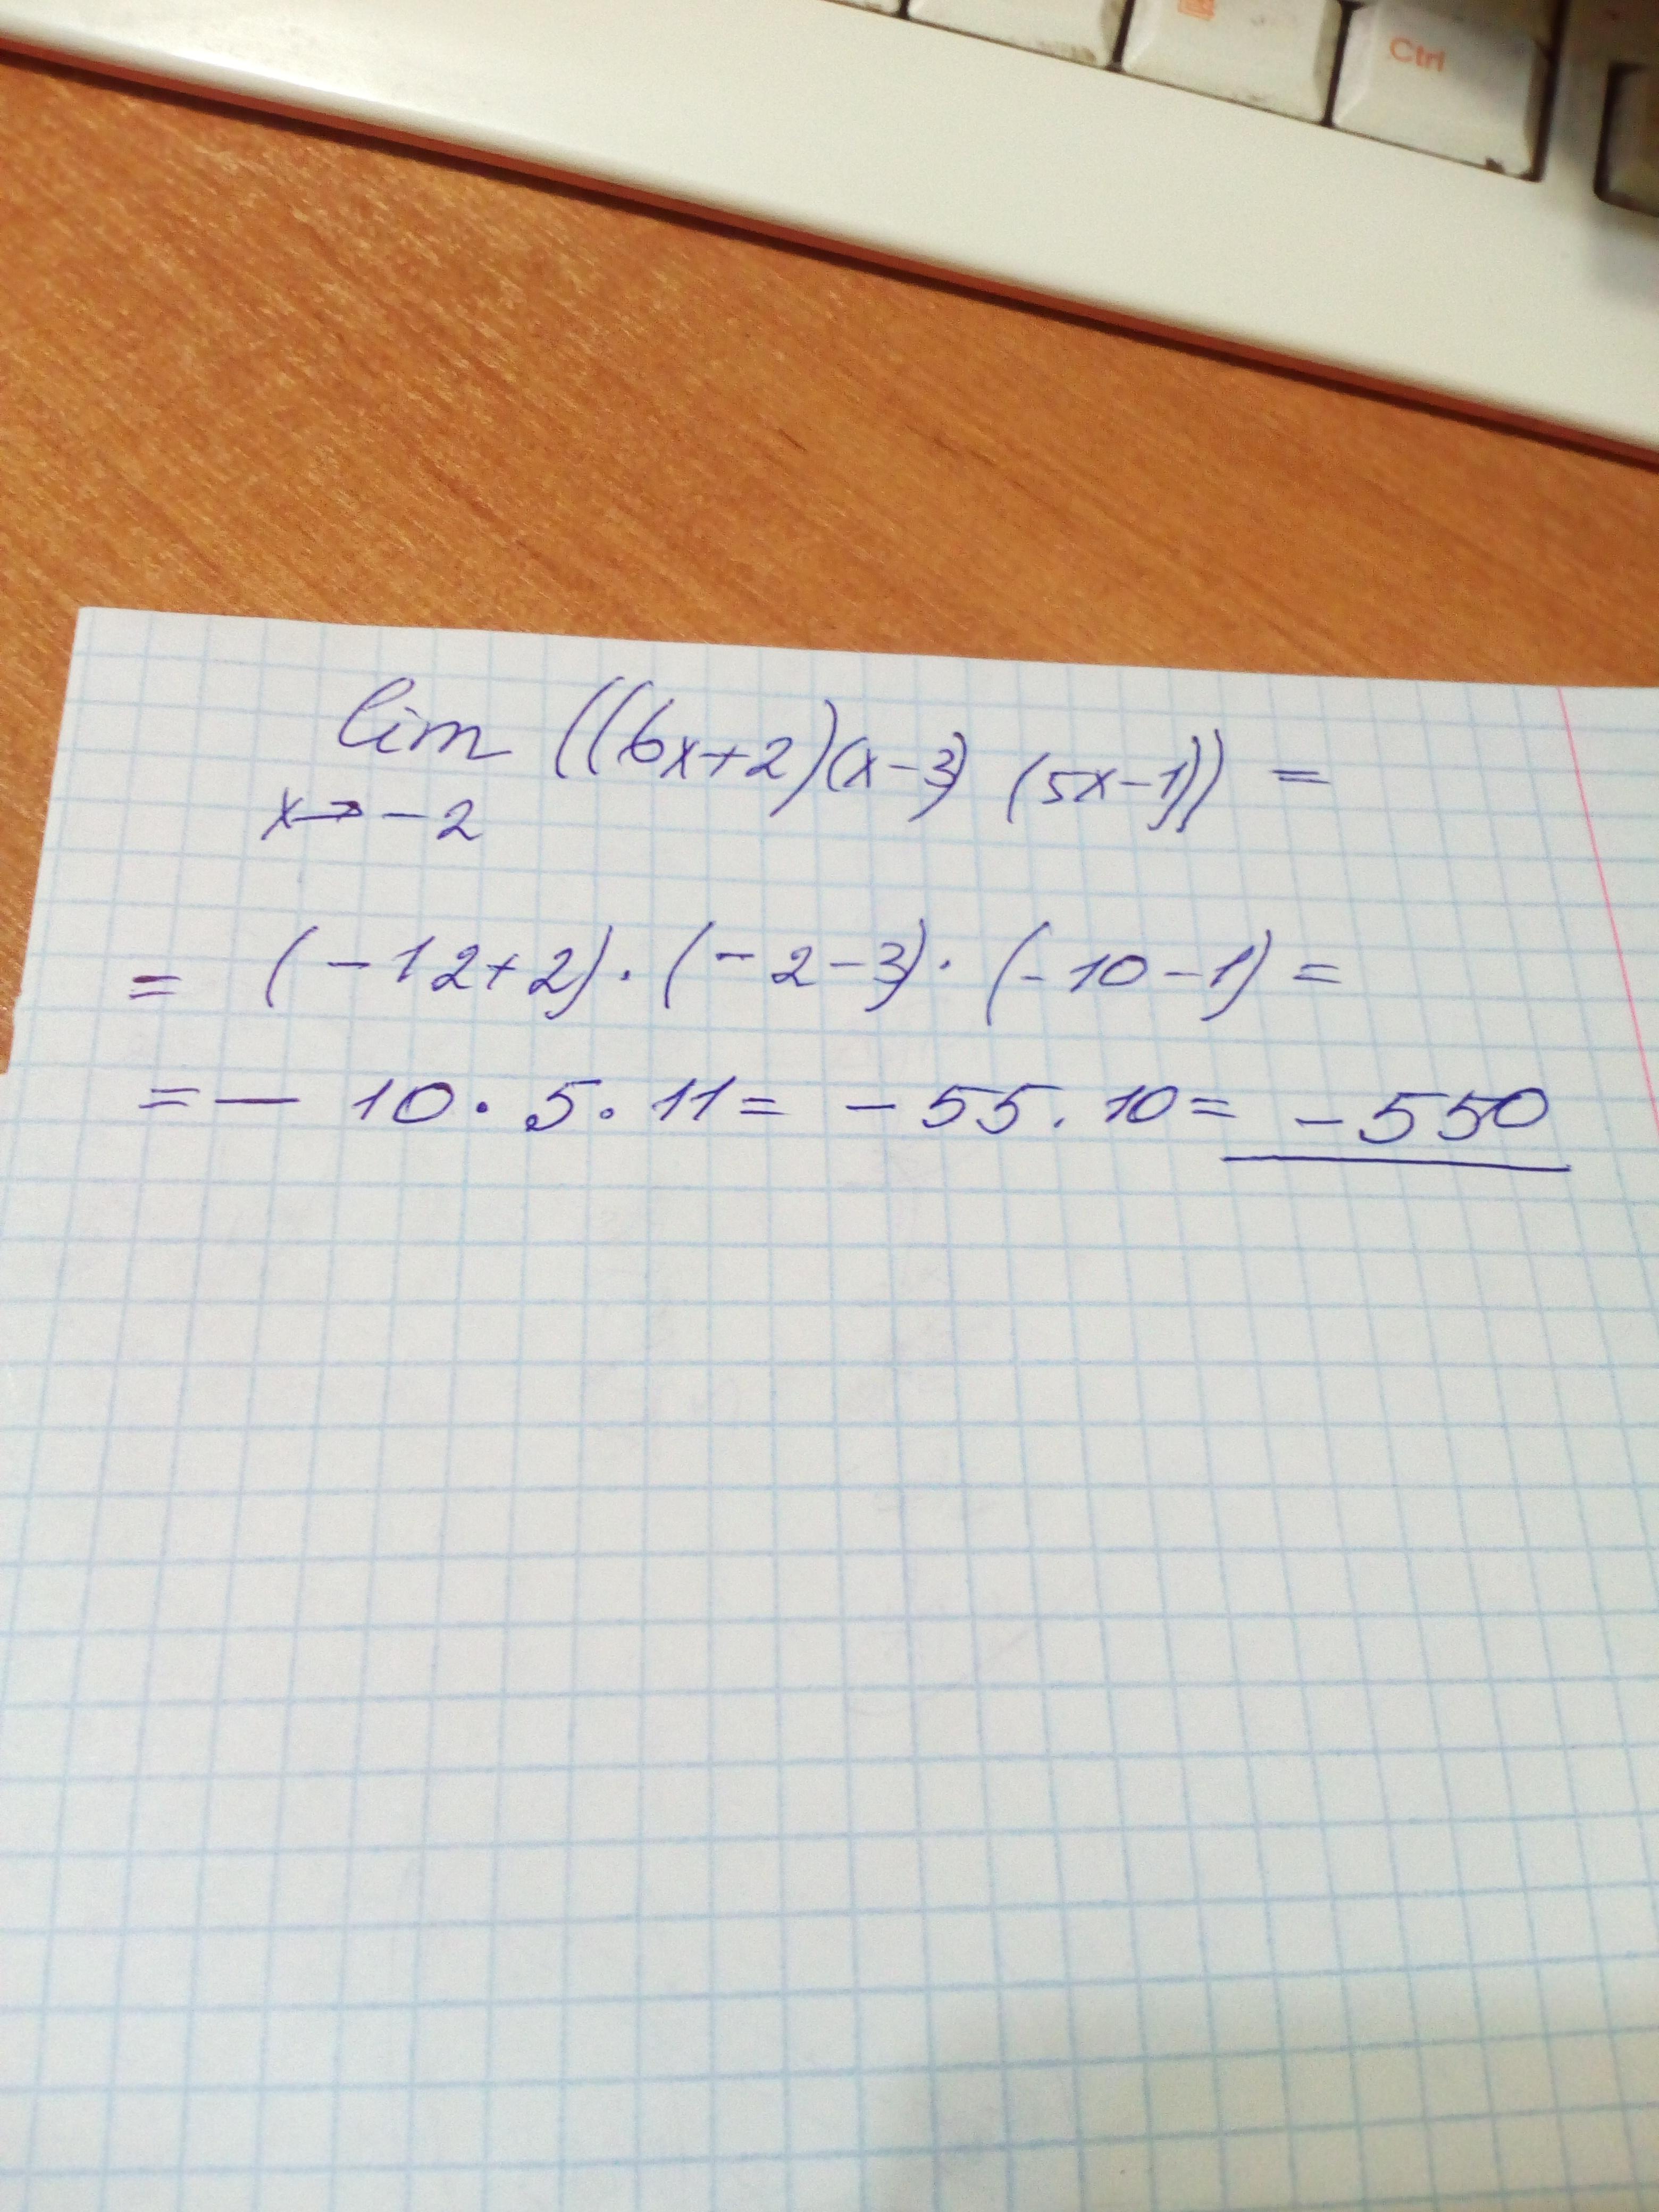 Ctrl
lim ((6x+2)(x-3) (5x-1)) =
x→-2
= (-12+2)·(-2-3)·(-10-1) =
=- 10·5·11= -55.10= -550